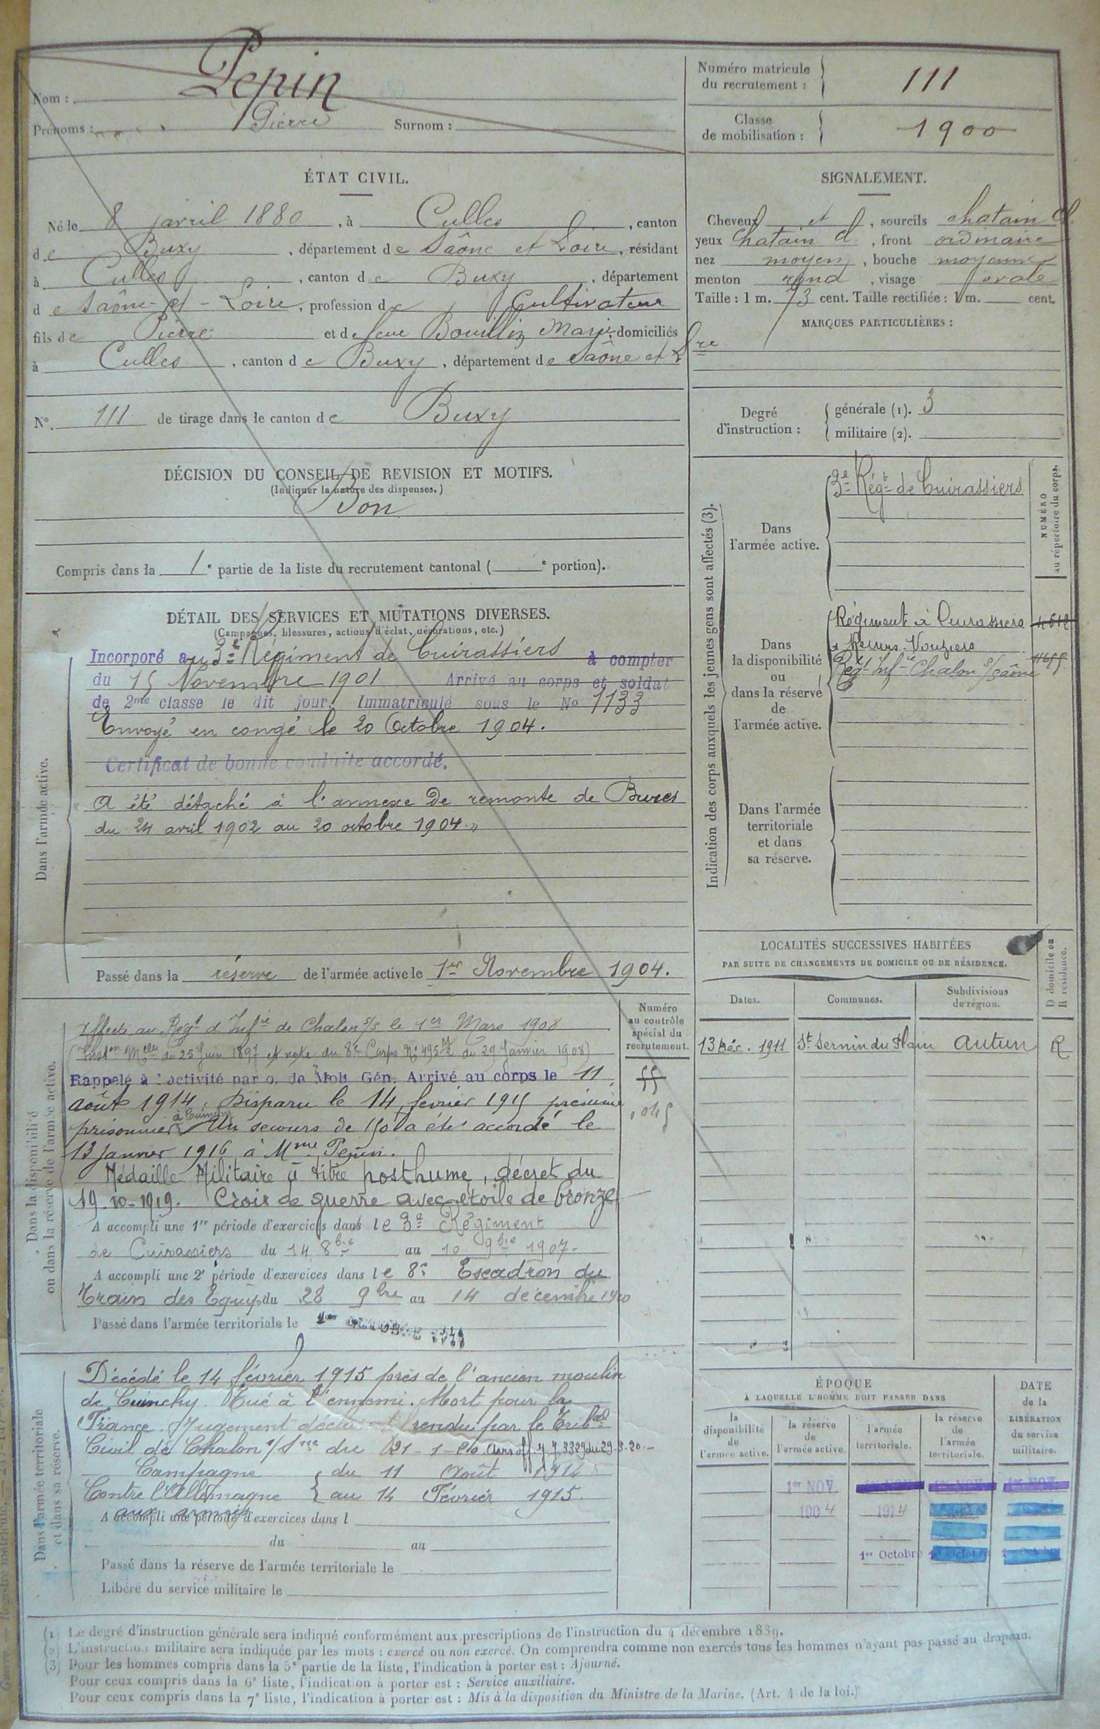 Nom : Pepin
Prénoms : Pierre Surnom :
Numéro matricule du recrutement : 111
Classe de mobilisation : 1900
ÉTAT CIVIL.
Né le 8 avril 1880, à Culles, canton
de Buxy, département de Saône et Loire, résidant
à Culles, canton de Buxy, département
de Saône-et-Loire, profession de Cultivateur
fils de Pierre et de feue Marie domiciliés
à Culles, canton de Buxy, département de Saône et Lre
N°. 111 de tirage dans le canton de Buxy
SIGNALEMENT.
Cheveux et, sourcils chatain cl
yeux chatain cl, front ordinaire
nez moyen, bouche moyenne
menton rond, visage ovale
Taille : 1 m. 73 cent. Taille rectifiée : 1 m. cent.
MARQUES PARTICULIÈRES :
Degré d'instruction :
générale (1). 3
militaire (2).
DÉCISION DU CONSEIL DE REVISION ET MOTIFS.
(Indiquer la nature des dispenses.)
Bon
Compris dans la 1e partie de la liste du recrutement cantonal ( e portion).
Indication des corps auxquels les jeunes gens sont affectés (3).
NUMÉRO au répertoire du corps.
Dans l'armée active.
3e Régt de Cuirassiers
Dans la disponibilité ou dans la réserve de l'armée active.
Régiment de Cuirassiers
Vouziers
Régt Infie Chalon s/Saône
Dans l'armée territoriale et dans sa réserve.
DÉTAIL DES SERVICES ET MUTATIONS DIVERSES.
(Campagnes, blessures, actions d'éclat, décorations, etc.)
Dans l'armée active.
Incorporé au 3e Régiment de Cuirassiers à compter
du 15 Novembre 1901 Arrivé au corps et soldat
de 2me classe le dit jour. Immatriculé sous le No 1133
Envoyé en congé le 20 Octobre 1904.
Certificat de bonne conduite accordé.
A été détaché à l'annexe de remonte de
du 24 avril 1902 au 20 octobre 1904.
Passé dans la réserve de l'armée active le 1er Novembre 1904.
LOCALITÉS SUCCESSIVES HABITÉES
PAR SUITE DE CHANGEMENTS DE DOMICILE OU DE RÉSIDENCE.
D domicile ou R résidence.
Dates. Communes. Subdivisions de région.
13 Déc. 1911 St Sernin du Plain Autun R
Numéro au contrôle spécial du recrutement.
Dans la disponibilité ou dans la réserve de l'armée active.
Affecté au Régt d'Infie de Chalon s/S le 1er Mars 1908
du 25 Juin 1897 et note du 8e Corps du 29 Janvier 1908)
Rappelé à l'activité par o. de Mob Gén. Arrivé au corps le 11
août 1914. Disparu le 14 février 1915 présumé
prisonnier à Cuinchy Un secours de 150 a été accordé le
13 janvier 1916 à Mme Pepin.
Médaille Militaire à titre posthume, décret du
19-10-1919. Croix de guerre avec étoile de bronze
A accompli une 1re période d'exercices dans le 3e Régiment
de Cuirassiers du 14 8bre au 10 9bre 1907.
A accompli une 2e période d'exercices dans le 8e Escadron du
Train des Equip. du 28 9bre au 14 décembre 1910
Passé dans l'armée territoriale le
Dans l'armée territoriale et dans sa réserve.
Décédé le 14 février 1915 près de l'ancien moulin
de Cuinchy. Tué à l'ennemi. Mort pour la
France. Jugement déclaratif rendu par le Tribal
Civil de Chalon s/Sne du 21-1-20.
Campagne du 11 Août 1914
Contre l'Allemagne au 14 Février 1915.
A accompli une période d'exercices dans l
du au
Passé dans la réserve de l'armée territoriale le
Libéré du service militaire le
ÉPOQUE
A LAQUELLE L'HOMME DOIT PASSER DANS
DATE de la LIBÉRATION du service militaire.
la disponibilité de l'armée active. la réserve de l'armée active. l'armée territoriale. la réserve de l'armée territoriale.
1er NOV.
1904 1914
1er Octobre
(1) Le degré d'instruction générale sera indiqué conformément aux prescriptions de l'instruction du 4 décembre 1889.
(2) L'instruction militaire sera indiquée par les mots : exercé ou non exercé. On comprendra comme non exercés tous les hommes n'ayant pas passé au drapeau.
(3) Pour les hommes compris dans la 5e partie de la liste, l'indication à porter est : Ajourné.
Pour ceux compris dans la 6e liste, l'indication à porter est : Service auxiliaire.
Pour ceux compris dans la 7e liste, l'indication à porter est : Mis à la disposition du Ministre de la Marine. (Art. 4 de la loi.)